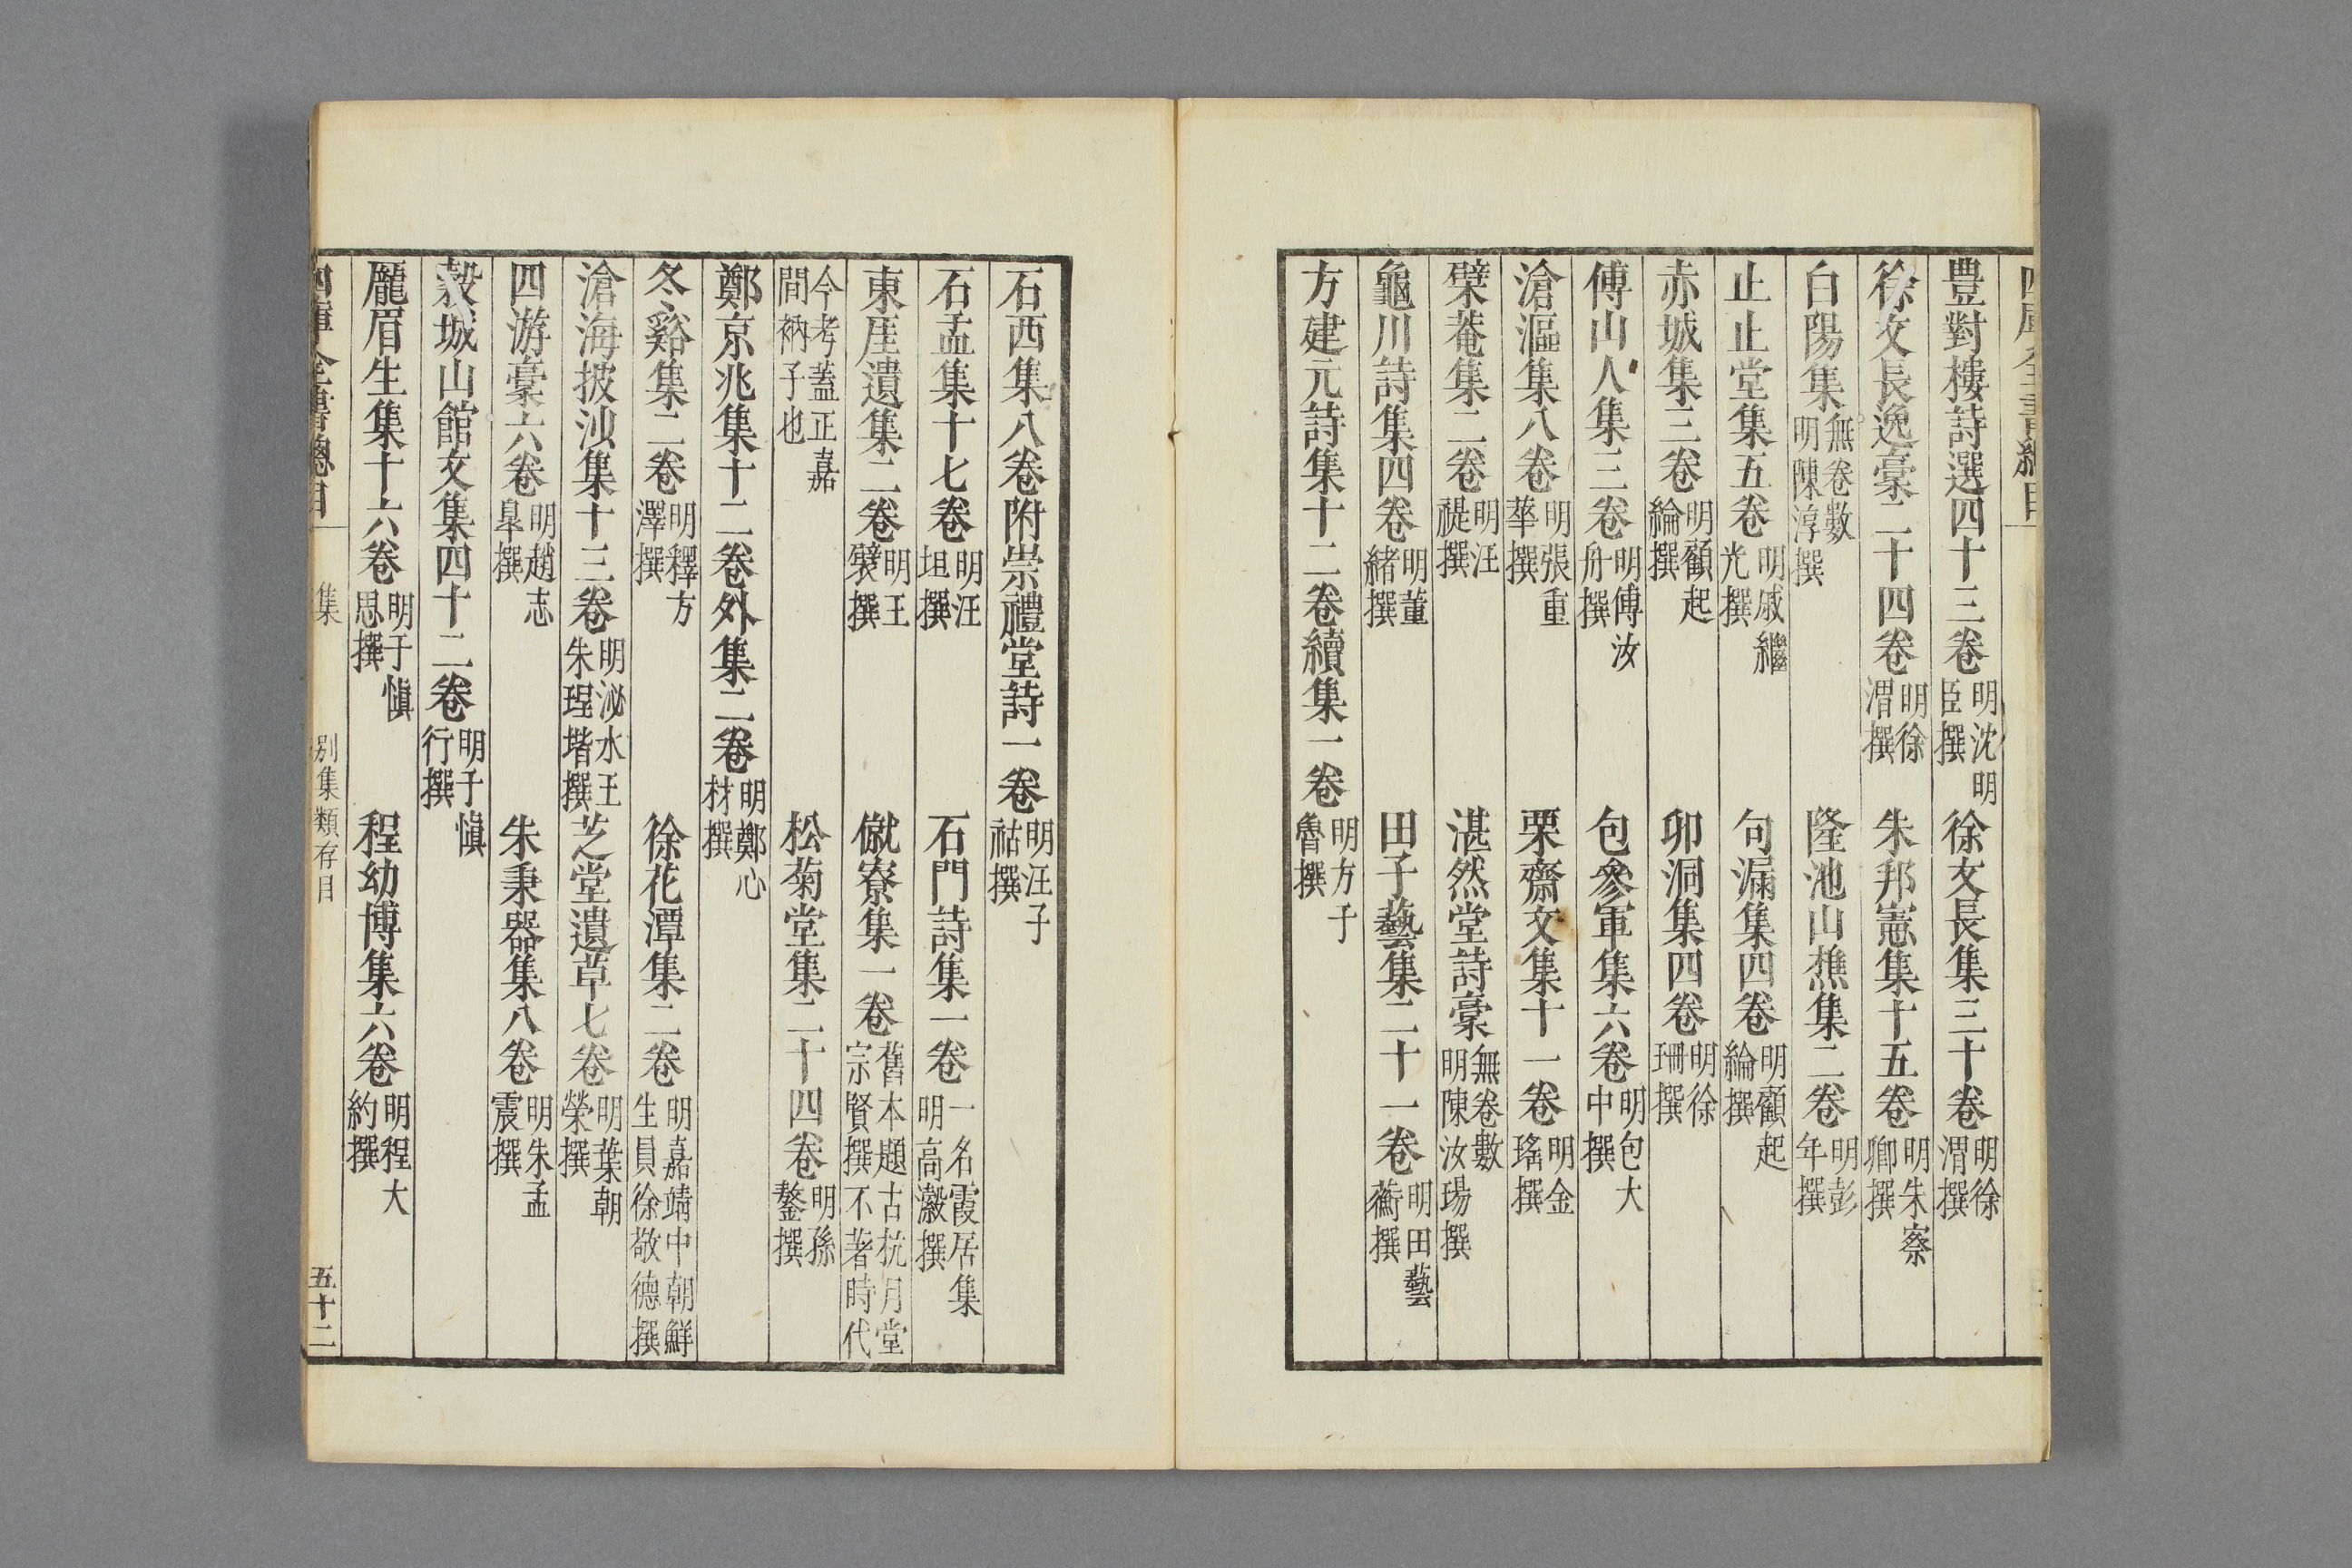 豊對樓詩選四十三卷明沈明臣撰 徐文長集三十卷明徐渭撰
徐文長逸稾二十四卷明徐渭撰 朱邦憲集十五卷明朱察卿撰
白陽集無卷數明陳淳撰 隆池山樵集二卷明彭年撰
止止堂集五卷明戚繼光撰 句漏集四卷明顧起綸撰
赤城集三卷明顧起綸撰 卯洞集四卷明徐珊撰
傅山人集三卷明傅汝舟撰 包參軍集六卷明包大中撰
滄漚集八卷明張重華撰 栗齋文集十一卷明金瑤撰
檗菴集二卷明汪禔撰 湛然堂詩稾無卷數明陳汝瑒撰
龜川詩集四卷明董緒撰 田子藝集二十一卷明田藝蘅撰
方建元詩集十二卷續集一卷明方于魯撰
石西集八卷附崇禮堂詩一卷明汪子祜撰
石孟集十七卷明汪坦撰 石門詩集一卷一名霞居集明高瀫撰
東厓遺集二卷明王襞撰 僦寮集一卷舊本題古杭月堂宗賢撰不著時代
今考蓋正嘉間衲子也 松菊堂集二十四卷明孫鏊撰
鄭京兆集十二卷外集二卷明鄭心材撰
冬谿集二卷明釋方澤撰 徐花潭集二卷明嘉靖中朝鮮生員徐敬德撰
滄海披沙集十三卷明泌水王朱珵堦撰 芝堂遺草七卷明葉朝榮撰
四游稾六卷明趙志皐撰 朱秉器集八卷明朱孟震撰
榖城山館文集四十二卷明于愼行撰
龎眉生集十六卷明于愼思撰 程幼博集六卷明程大約撰
四庫全書總目 集 別集類存目 五十二